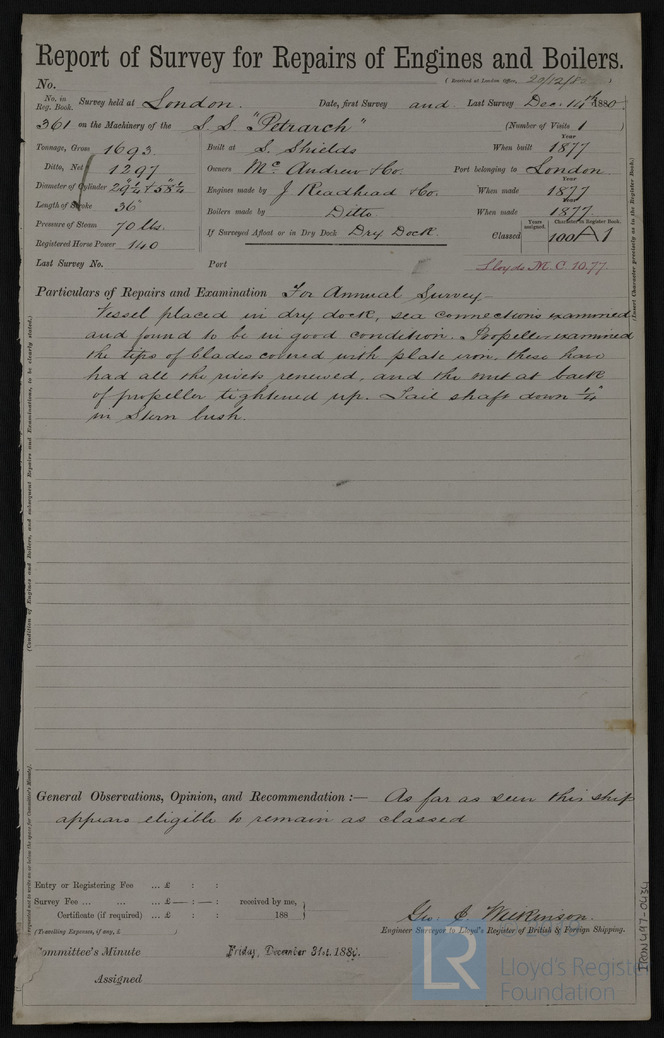 Report of Survey for Repairs of Engines and Boilers.
No. (Received at London Office, 20/12/80)
No. in Reg. Book. Survey held at London. Date, first Survey and Last Survey Dec. 14th 1880
361 on the Machinery of the S.S. "Petrarch" (Number of Visits 1)
Tonnage, Gross 1693 Built at S. Shields When built Year 1877
Ditto, Net 1297 Owners Mc Andrew & Co. Port belonging to London
Diameter of Cylinder 29¼" + 58¼" Engines made by J Readhead & Co. When made Year 1877
Length of Stroke 36" Boilers made by Ditto When made Year 1877
Pressure of Steam 70 lbs. If Surveyed Afloat or in Dry Dock Dry Dock. Classed Years assigned. Character in Register Book. 100 A 1
Registered Horse Power 140
Last Survey No. Port Lloyds M.C. 10.77
Particulars of Repairs and Examination For Annual Survey—
Vessel placed in dry dock, sea connections examined
and found to be in good condition. Propeller examined
the tips of blades covered with plate iron, these have
had all the rivets renewed, and the nut at back
of propeller tightened up. Tail shaft down ¼"
in Stern bush.
General Observations, Opinion, and Recommendation :— As far as seen this ship
appears eligible to remain as classed
Entry or Registering Fee ... £ : :
Survey Fee ... ... ... £ — : — : received by me,
Certificate (if required) ... £ : : 188
(Travelling Expenses, if any, £ )
Geo. C. Wilkinson.
Engineer Surveyor to Lloyd's Register of British & Foreign Shipping.
Committee's Minute Friday, December 31st, 1880.
Assigned
(Condition of Engines and Boilers, and subsequent Repairs and Examinations, to be clearly stated.)
(Insert Character precisely as in the Register Book.)
IRON497-0434
LR
Lloyd's Register
Foundation